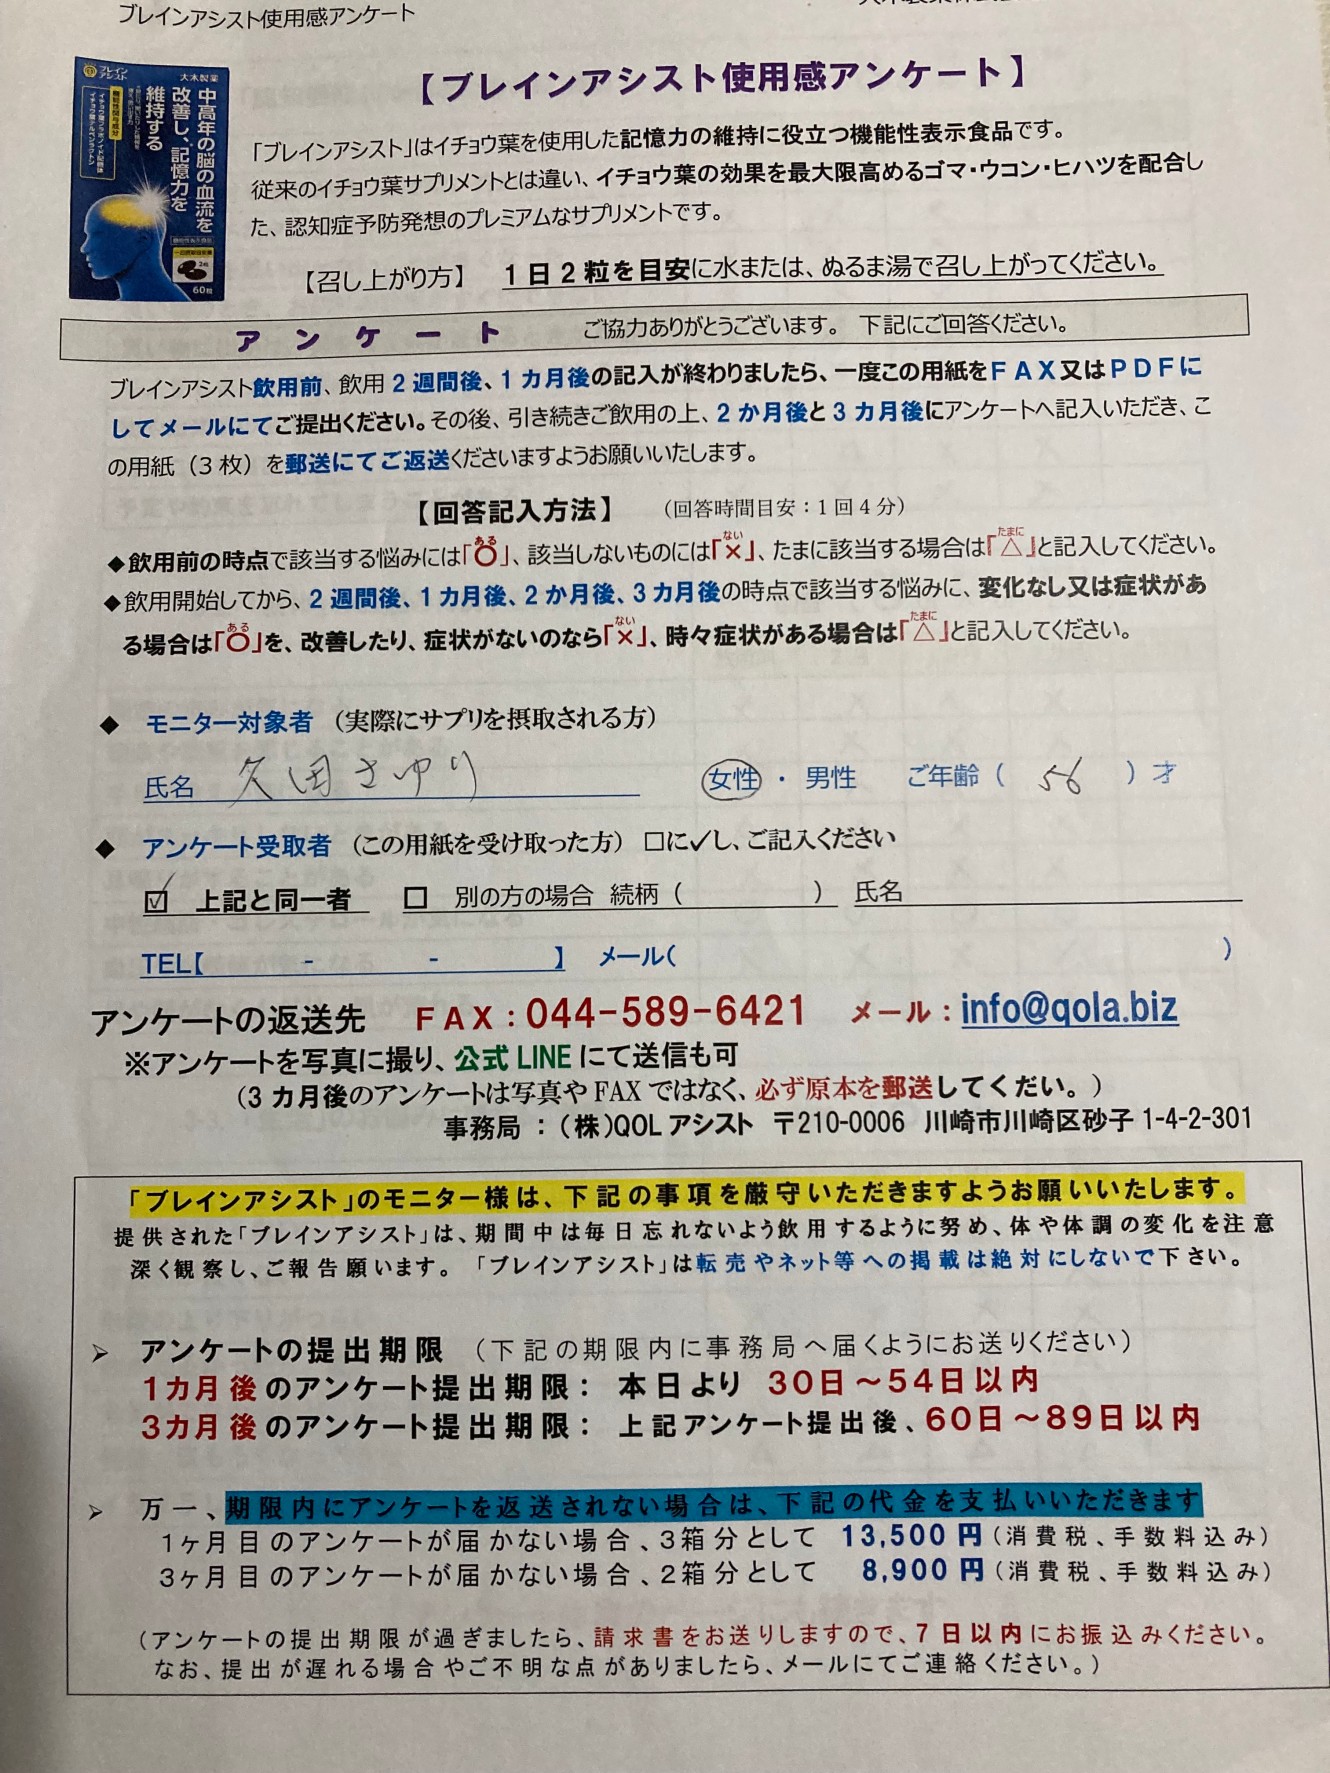 ブレインアシスト使用感アンケート
【ブレインアシスト使用感アンケート】
ブレインアシスト
大木製薬
中高年の脳の血流を
改善し、記憶力を
維持する
機能性関与成分
イチョウ葉フラボノイド配糖体
イチョウ葉テルペンラクトン
機能性表示食品
2粒
60粒
「ブレインアシスト」はイチョウ葉を使用した記憶力の維持に役立つ機能性表示食品です。
従来のイチョウ葉サプリメントとは違い、イチョウ葉の効果を最大限高めるゴマ・ウコン・ヒハツを配合し
た、認知症予防発想のプレミアムなサプリメントです。
【召し上がり方】 1日2粒を目安に水または、ぬるま湯で召し上がってください。
アンケート ご協力ありがとうございます。 下記にご回答ください。
ブレインアシスト飲用前、飲用2週間後、1カ月後の記入が終わりましたら、一度この用紙をFAX又はPDFに
してメールにてご提出ください。その後、引き続きご飲用の上、2か月後と3カ月後にアンケートへ記入いただき、こ
の用紙（3枚）を郵送にてご返送くださいますようお願いいたします。
【回答記入方法】 （回答時間目安：1回4分）
◆飲用前の時点で該当する悩みには「〇」、該当しないものには「×」、たまに該当する場合は「△」と記入してください。
ある ない たまに
◆飲用開始してから、2週間後、1カ月後、2か月後、3カ月後の時点で該当する悩みに、変化なし又は症状があ
る場合は「〇」を、改善したり、症状がないのなら「×」、時々症状がある場合は「△」と記入してください。
ある ない たまに
◆ モニター対象者 （実際にサプリを摂取される方）
氏名 久田さゆり 女性 ・ 男性 ご年齢（ 56 ）才
◆ アンケート受取者 （この用紙を受け取った方）□に✓し、ご記入ください
☑ 上記と同一者 □ 別の方の場合 続柄（ ） 氏名
TEL【 - - 】 メール( )
アンケートの返送先 FAX：044-589-6421 メール：info@qola.biz
※アンケートを写真に撮り、公式LINEにて送信も可
（3カ月後のアンケートは写真やFAXではなく、必ず原本を郵送してくだい。）
事務局：（株）QOLアシスト 〒210-0006 川崎市川崎区砂子1-4-2-301
「ブレインアシスト」のモニター様は、下記の事項を厳守いただきますようお願いいたします。
提供された「ブレインアシスト」は、期間中は毎日忘れないよう飲用するように努め、体や体調の変化を注意
深く観察し、ご報告願います。「ブレインアシスト」は転売やネット等への掲載は絶対にしないで下さい。
➢ アンケートの提出期限 （下記の期限内に事務局へ届くようにお送りください）
1カ月後のアンケート提出期限： 本日より 30日～54日以内
3カ月後のアンケート提出期限： 上記アンケート提出後、60日～89日以内
➢ 万一、期限内にアンケートを返送されない場合は、下記の代金を支払いいただきます
1ヶ月目のアンケートが届かない場合、3箱分として 13,500円（消費税、手数料込み）
3ヶ月目のアンケートが届かない場合、2箱分として 8,900円（消費税、手数料込み）
（アンケートの提出期限が過ぎましたら、請求書をお送りしますので、7日以内にお振込みください。
なお、提出が遅れる場合やご不明な点がありましたら、メールにてご連絡ください。）